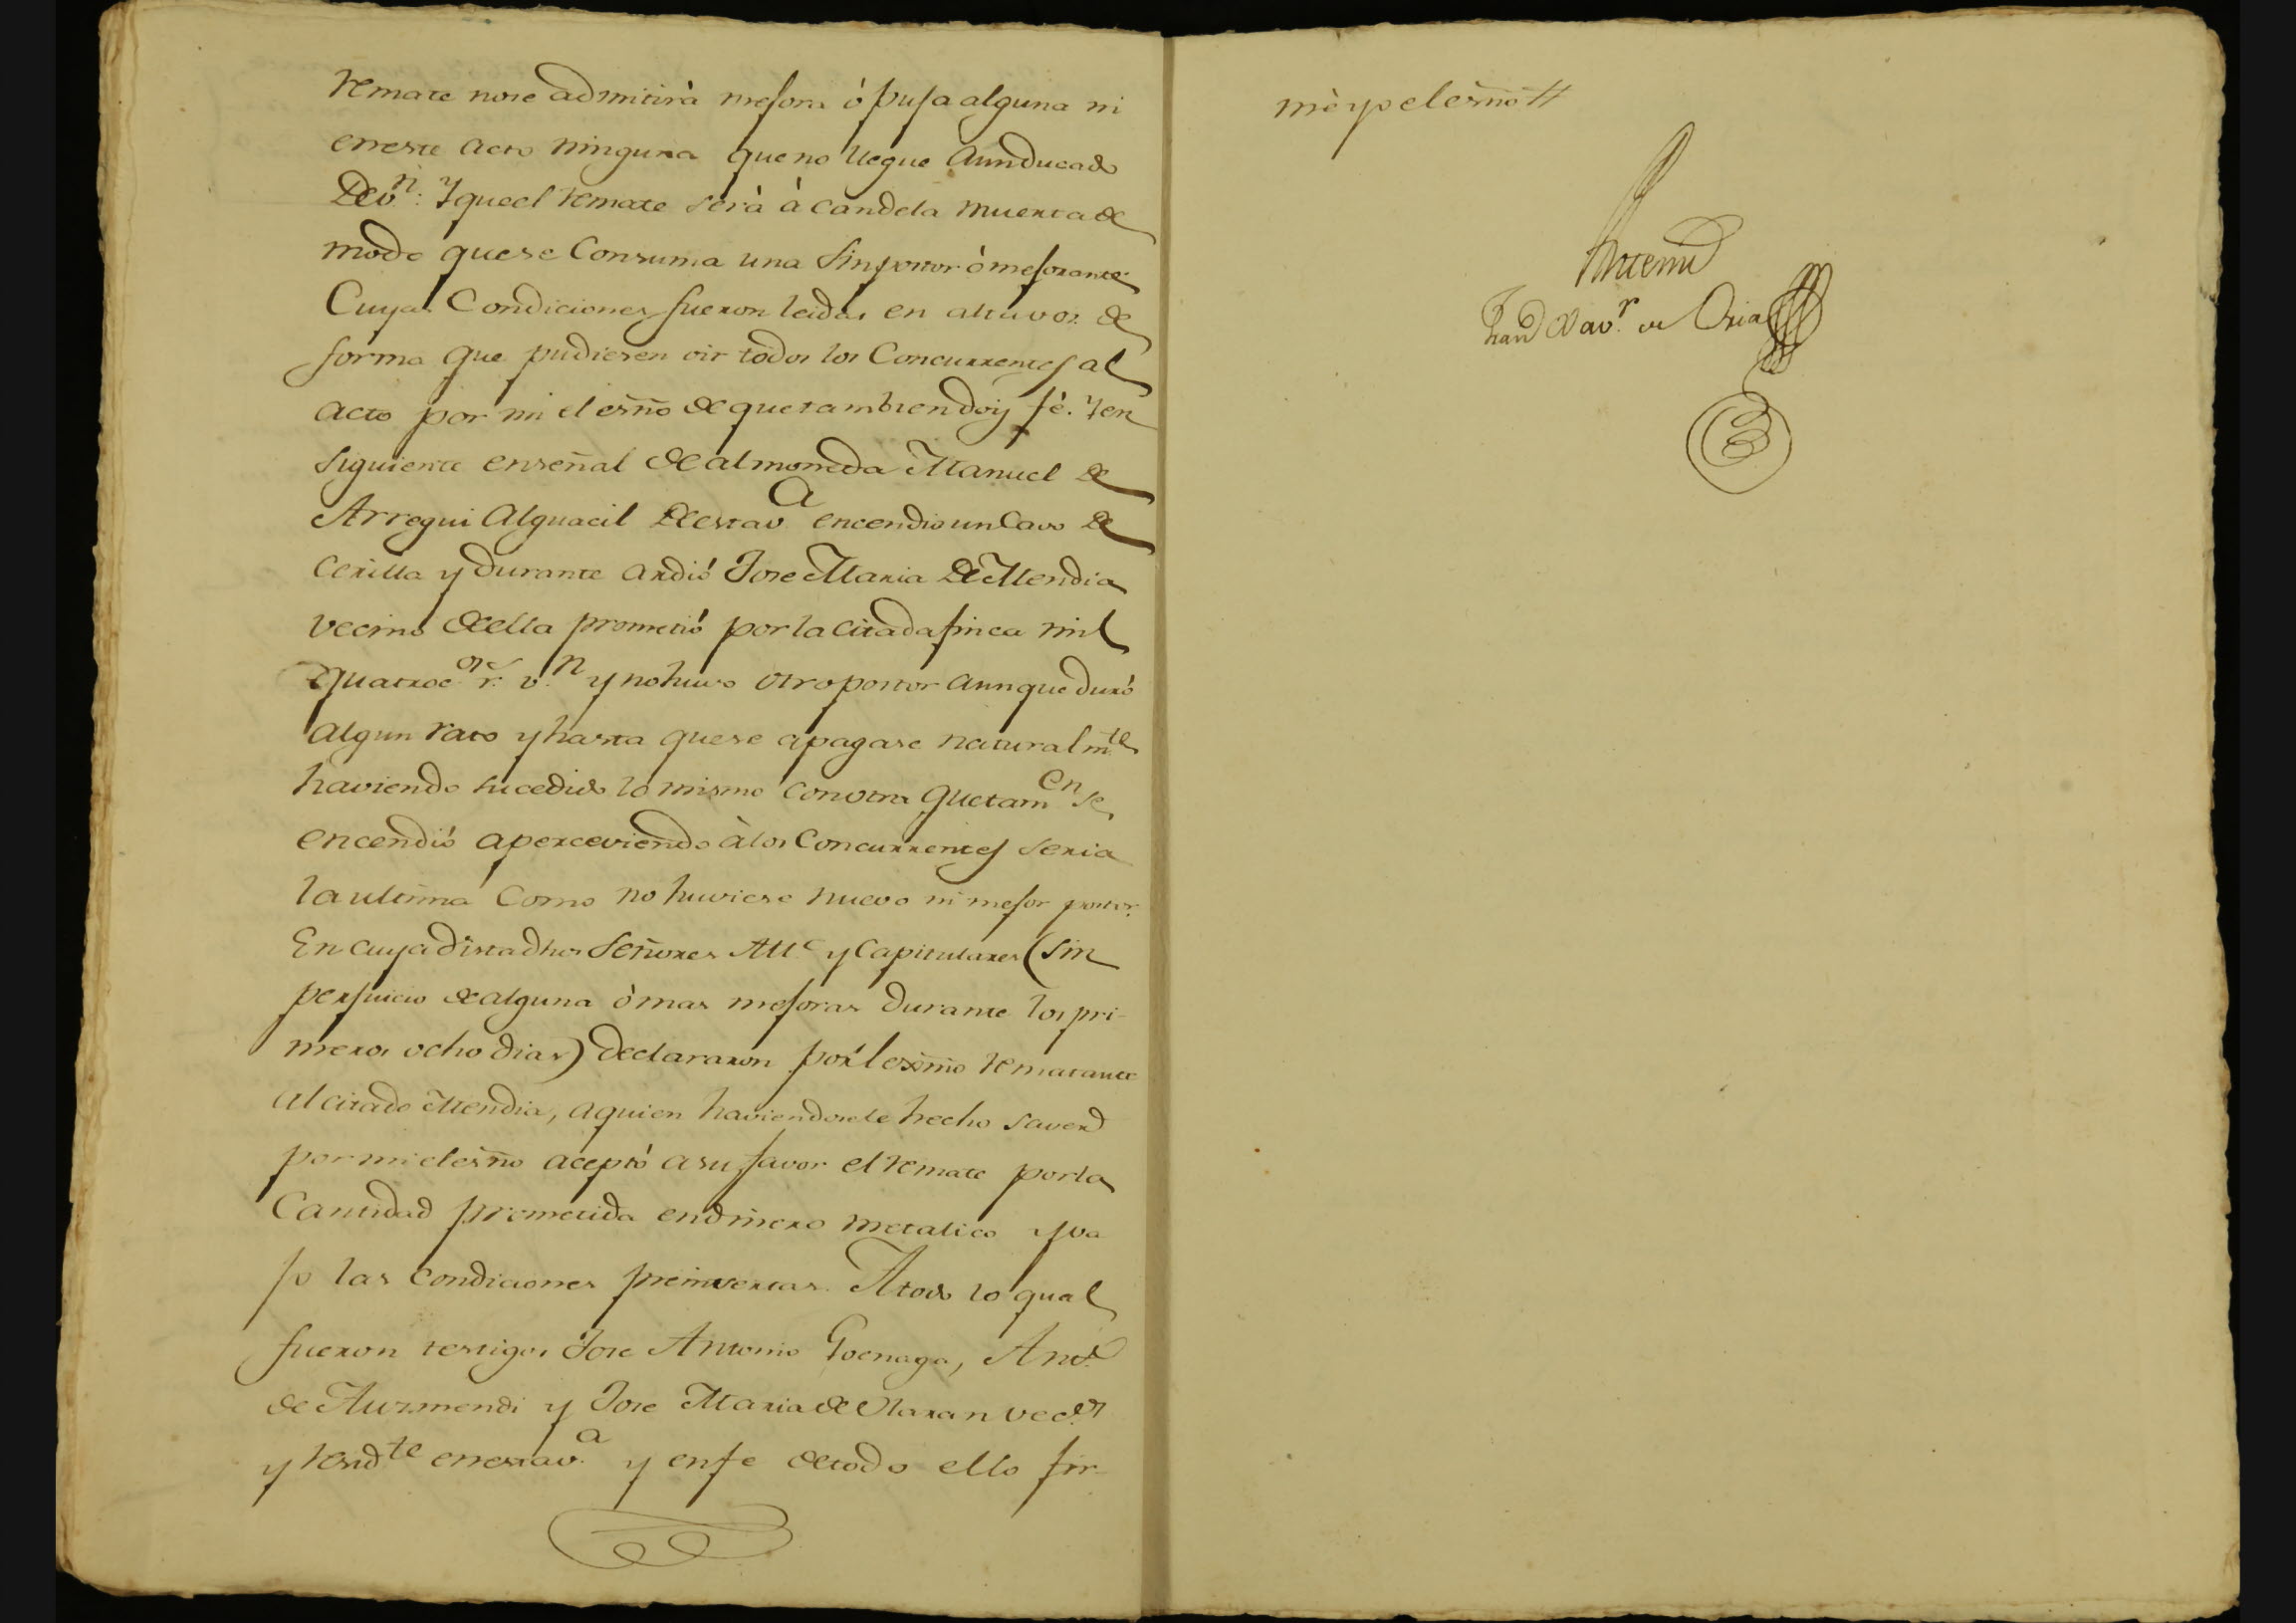 remate nose admitirà mejora ó puja alguna ni
eneste acto ninguna queno llegue aunducado
Dev.n: Yqueel remate serà à candela muerta de
modo quese Consuma una sinpostor òmejorante:
Cuyas Condiciones fueron leidas en altavoz de
forma que pudiesen oir todos los Concurrentes al
acto por mi el esñno de quetambiendoy fè. Yen
siguiente enseñal de almoneda Manuel de
Arregui Alguacil Deestav.a encendioun Cavo de
cerilla y durante ardió Jose Maria De Mendia
vecino deella prometió porlacitadafinca mil
quatroc.os r.s v.n y nohuvo otropostor aunque duró
algun rato yhasta quese apagase naturalm.te
haviendo sucedido lo mismo conotra quetam.en se
encendió aperceviendo àlos Concurrentes seria
laultima como no huviese nuevo ni mejor postor.
En cuyavista dhos Señores All.e y Capitulares (sin
perjuicio dealguna ò mas mejoras durante los pri-
meros ocho dias) declararon por lo mismo rematante
al citado Mendia, aquien haviendosele hecho saver
pormielesñno aceptó asufavor el remate porla
Cantidad prometida endinero metalico yva
jo las condiciones preinsertas. Atodo lo qual
fueron testigos Jose Antonio Goenaga, Ant.o
de Auzmendi y Jose Maria de Olaran vec.os
y resid.te enestav.a y enfe detodo ello fir-
mè yo elesñno //
Antemi
Fran.co Xav.r de Oria